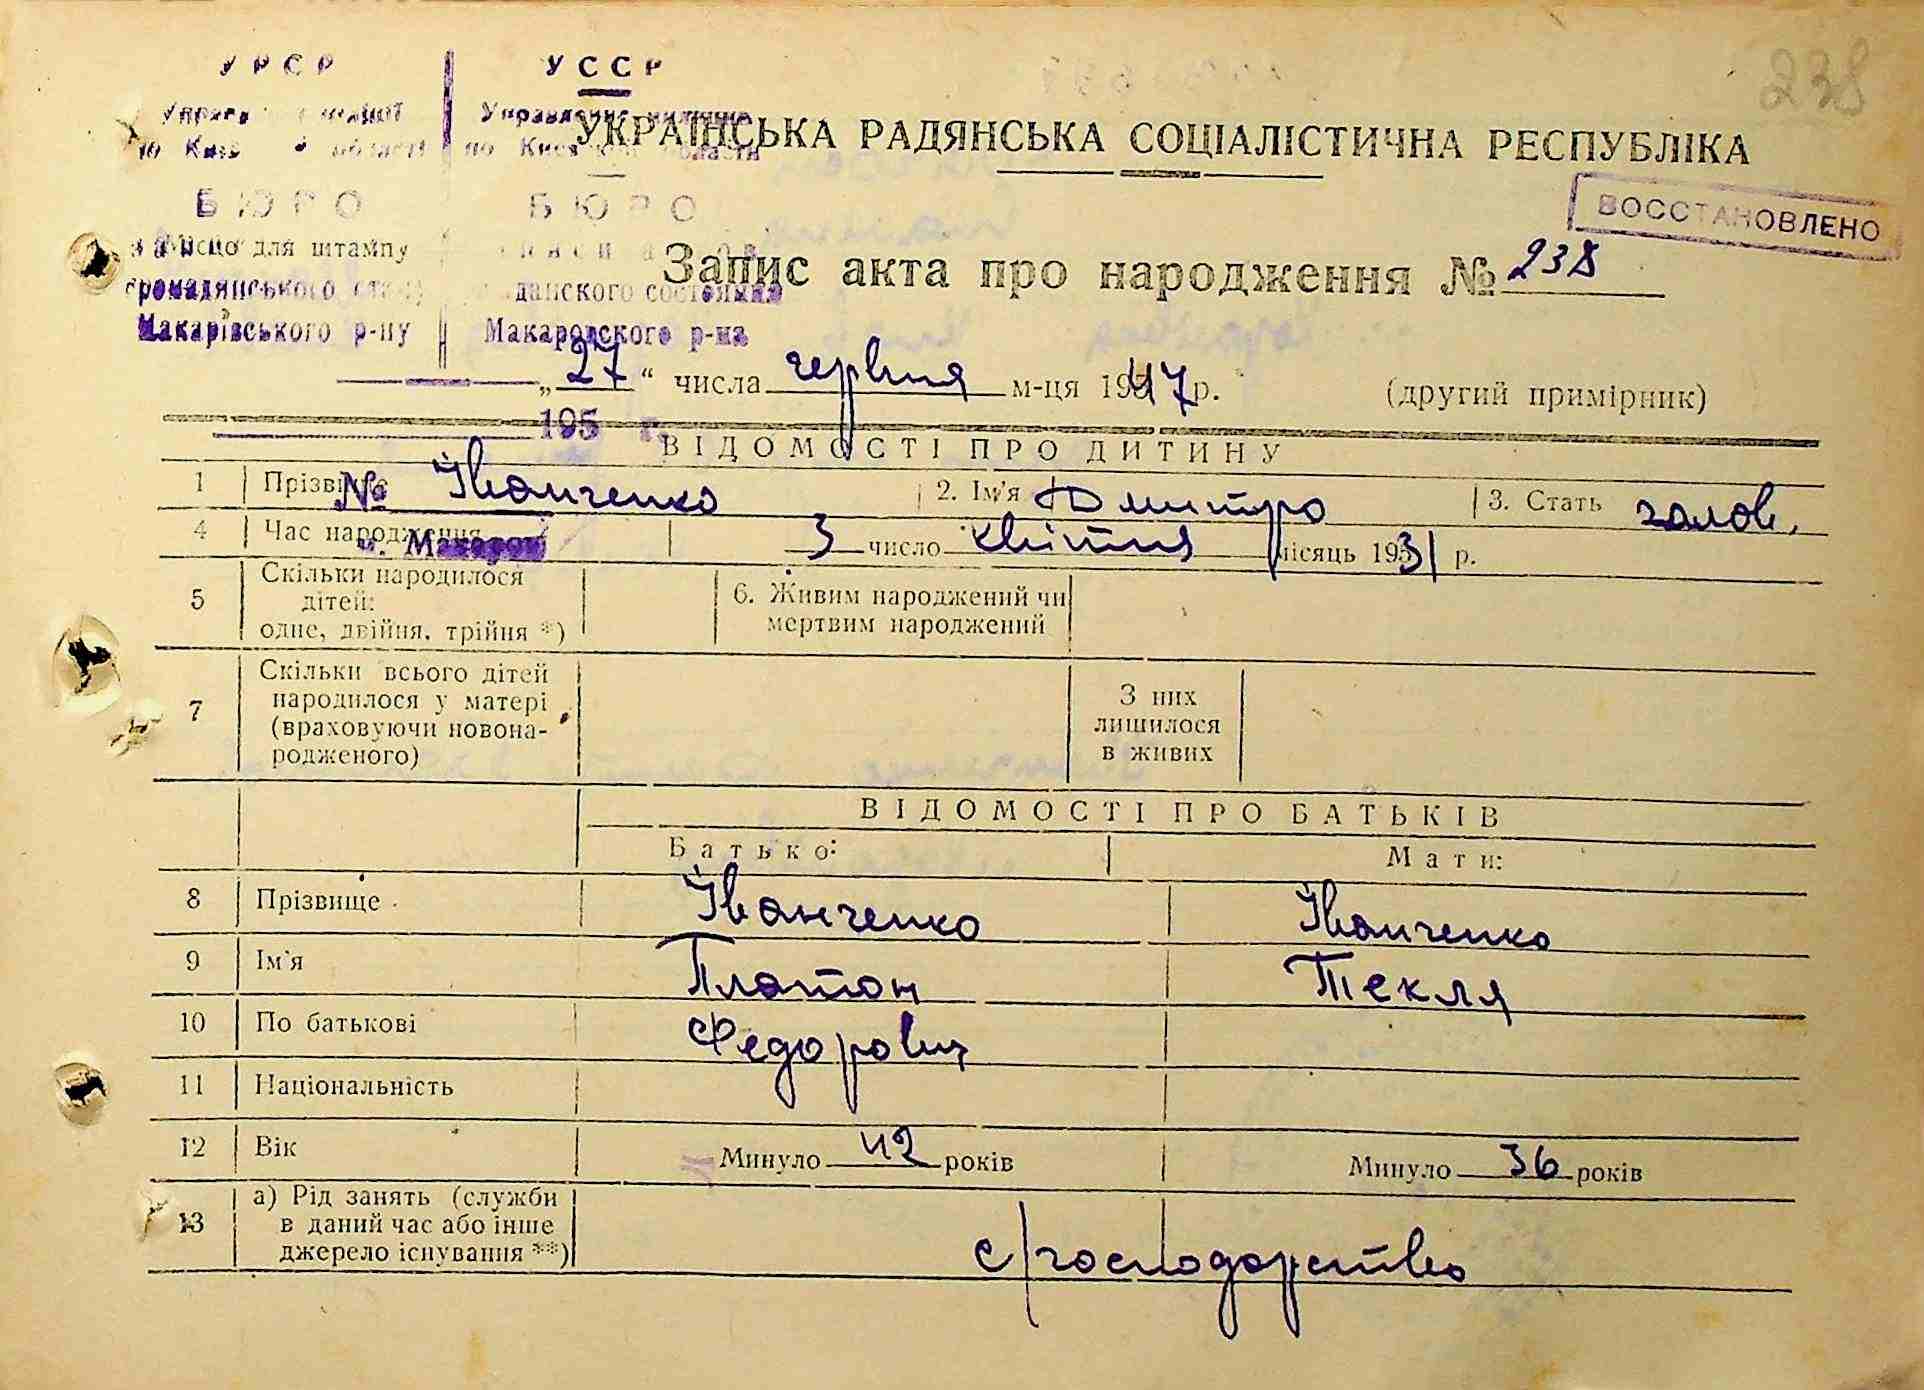 238
УРСР УССР
Управление милиции
по Київ області по Киевской области
УКРАЇНСЬКА РАДЯНСЬКА СОЦІАЛІСТИЧНА РЕСПУБЛІКА
БЮРО БЮРО
ВОССТАНОВЛЕНО
Місцо для штампу
Запис акта про народження № 238
громадянського стану гражданского состояния
Макарівського р-ну Макаровского р-на
„27“ числа червня м-ця 1947 р. (другий примірник)
195 г.
ВІДОМОСТІ ПРО ДИТИНУ
1 Прізвище № Іванченко 2. Ім'я Дмитро 3. Стать чолов.
4 Час народження м. Макаров 3 число квітня місяць 1931 р.
5 Скільки народилося
дітей:
одне, двійня, трійня *)
6. Живим народжений чи
мертвим народжений
7 Скільки всього дітей
народилося у матері
(враховуючи новона-
родженого)
З них
лишилося
в живих
ВІДОМОСТІ ПРО БАТЬКІВ
Батько: Мати:
8 Прізвище Іванченко Іванченко
9 Ім'я Платон Текля
10 По батькові Федорович
11 Національність
12 Вік Минуло 42 років Минуло 36 років
13 а) Рід занять (служби
в даний час або інше
джерело існування **)
с/господарство